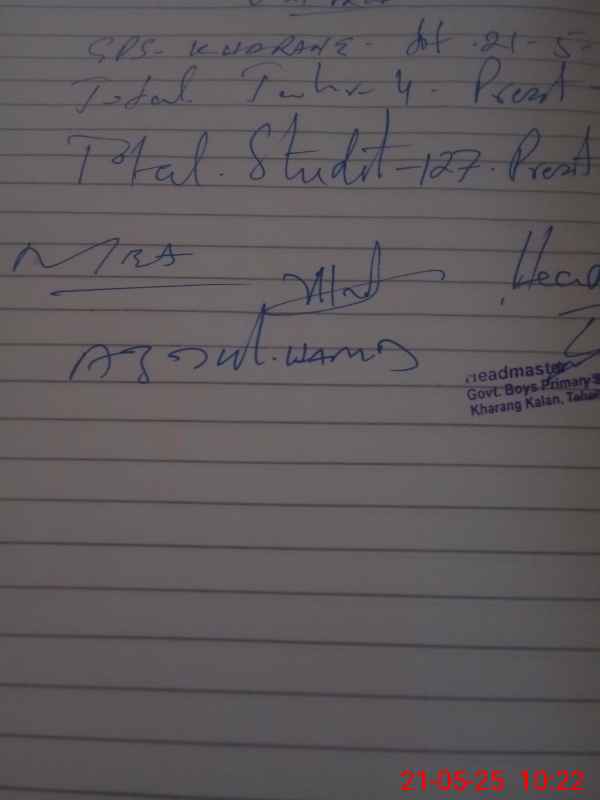 GPS- KHARANG- dt .21-5-
Total Teacher-4. Present -
Total. Student-127. Present
MEA
Head
Abdul.WAHID
Headmaster
Govt. Boys Primary S
Kharang Kalan, Tehsi
21-05-25 10:22